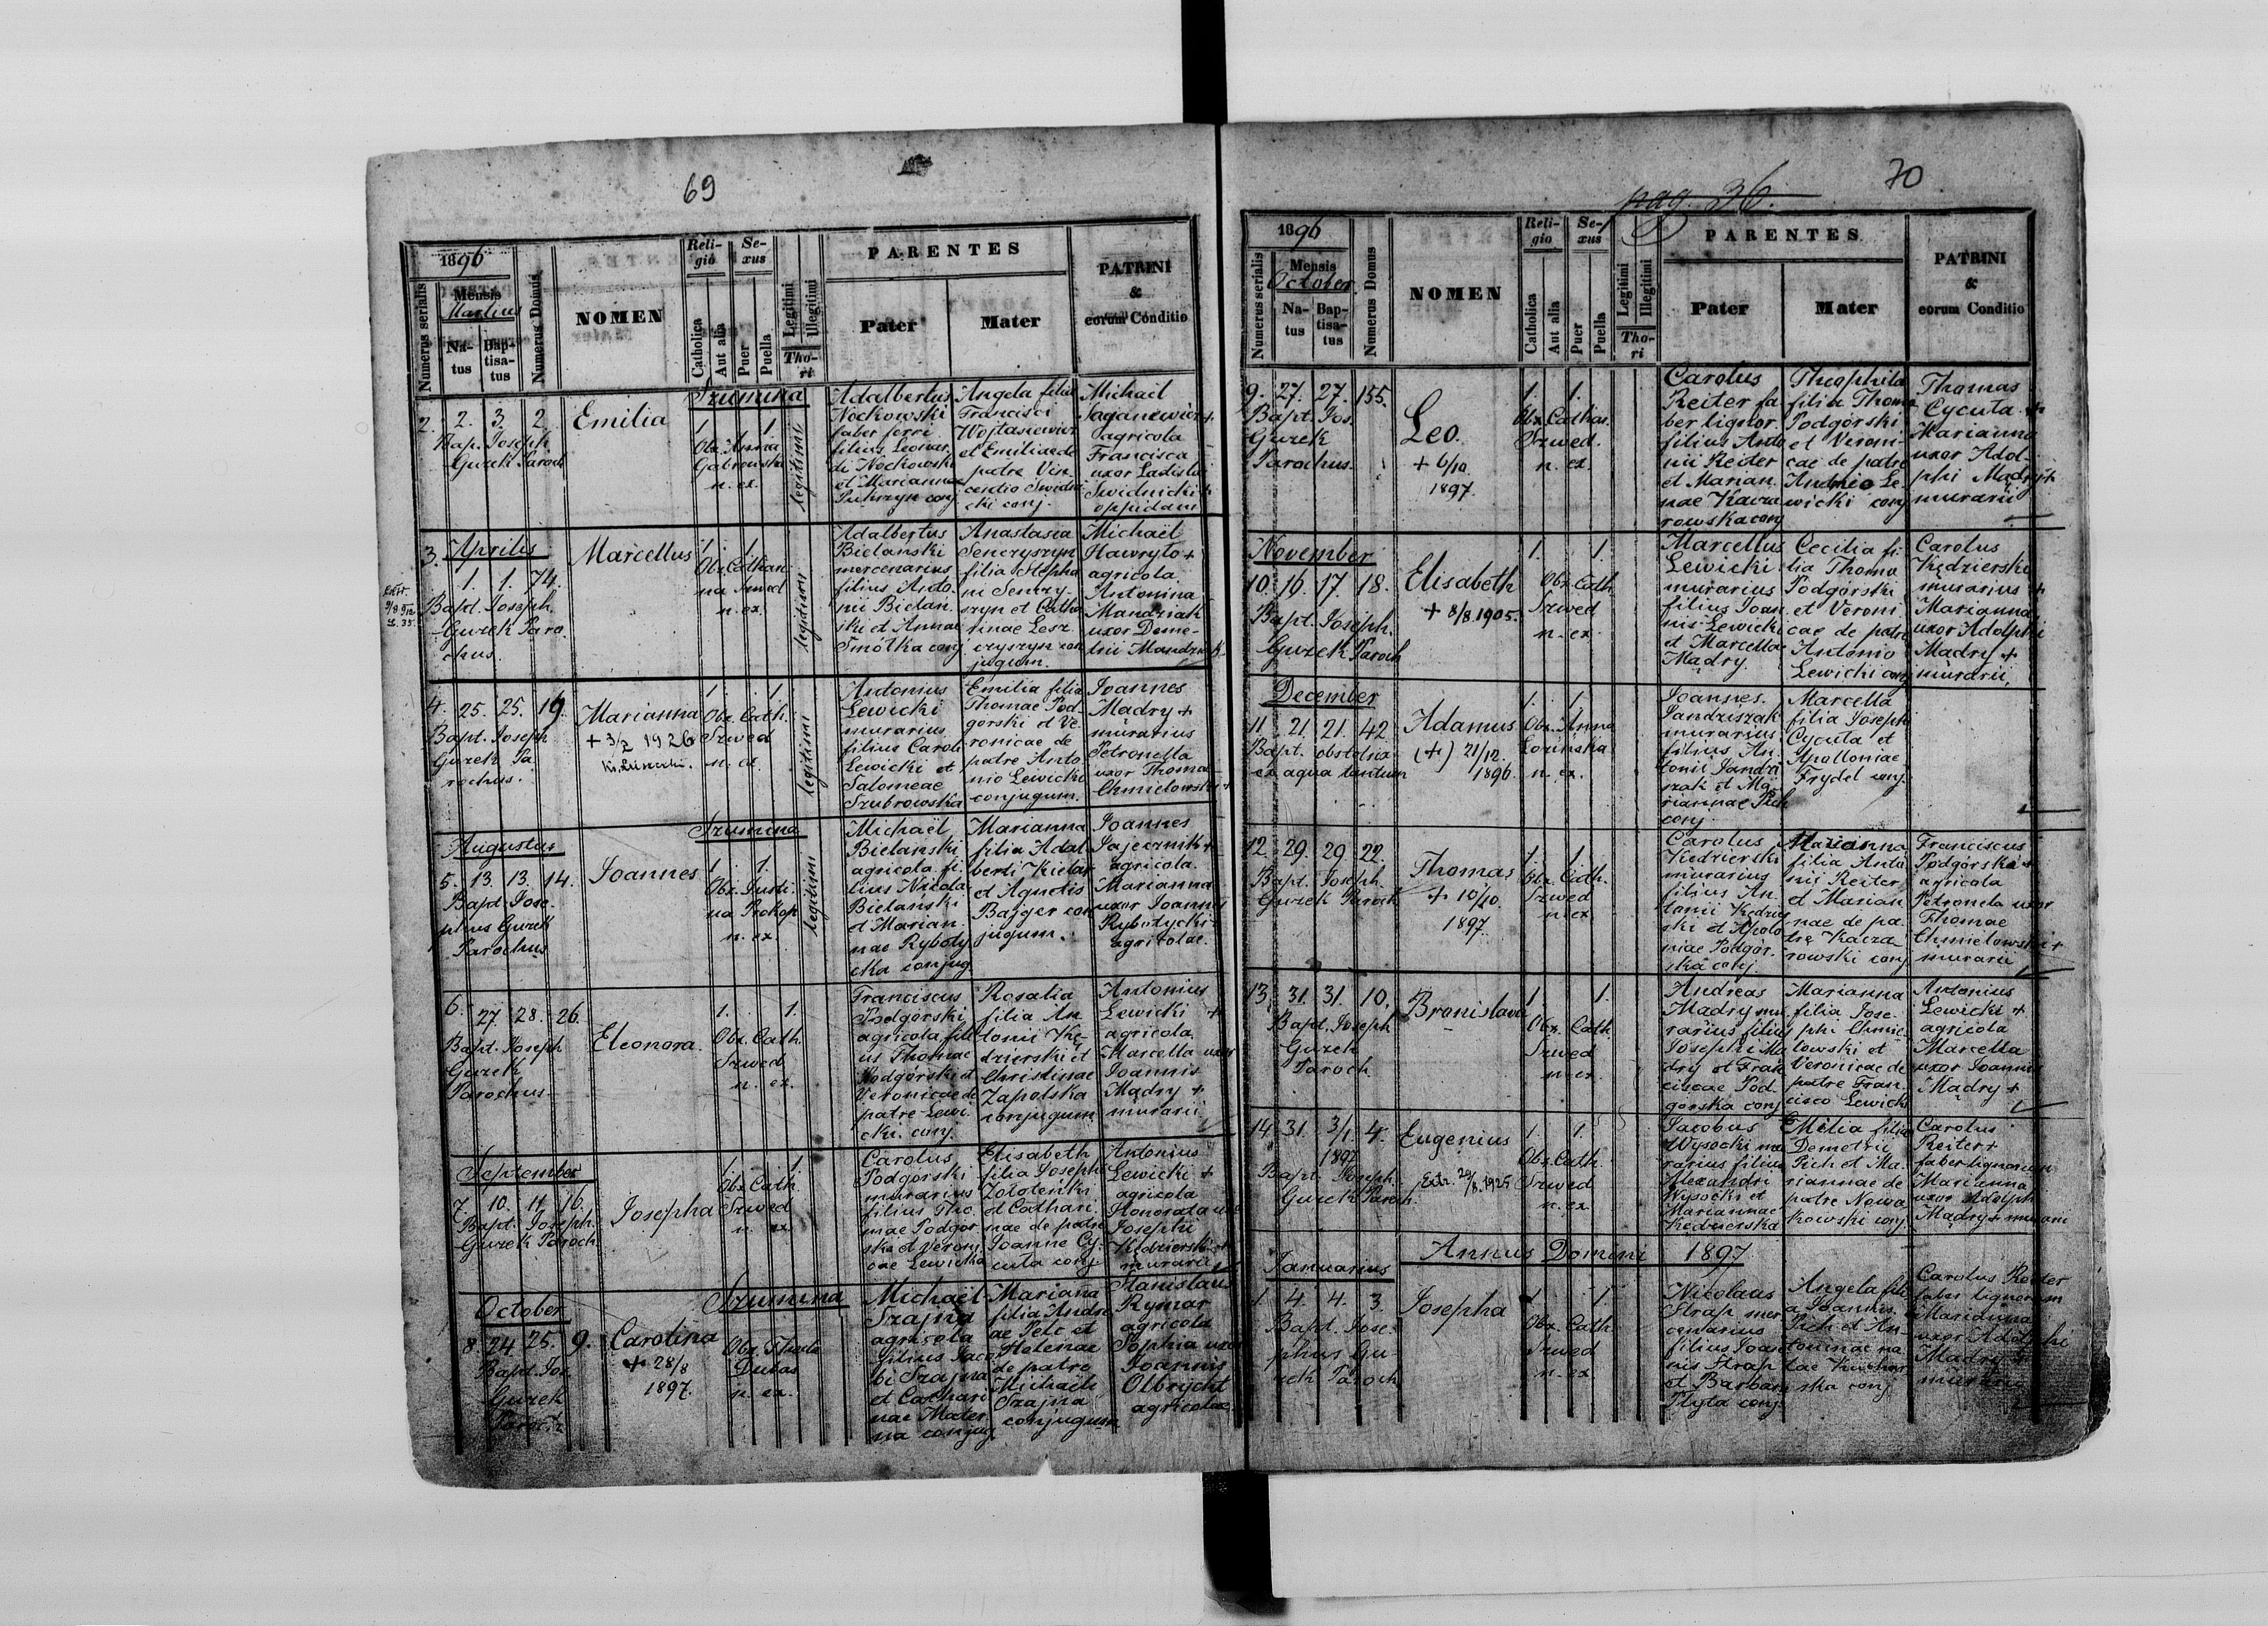 69
1896
Mensis
Martius
Numerus serialis
Natus
Baptisatus
Numerus Domus
NOMEN
Religio
Catholica
Aut alia
Sexus
Puer
Puella
Legitimi
Illegitimi
Thori
PARENTES
Pater
Mater
PATRINI
&
eorum Conditio
Szumina
2. 2. 3. 2
Bap. Joseph
Guzek Paroch
Emilia
1. 1.
Obs. Anna
n. ex.
legitimi
Adalbertus
Nockowski
faber ferri
filius Leonar
di Nockowski
et Mariannae
conj
Angela filia
Francisci
Wojtasiewicz
et Emiliae de
patre Vin
centio Swidni
cki conj.
Michael
Saganewicz +
agricola
Francisca
uxor Ladislai
Swidnicki +
oppidani
3. Aprilis
1. 1. 74.
Bapt. Joseph
Guzek Paro
chus.
Marcellus
1. 1.
Obs. Cathari
na Szwed
n. ex.
legitimi
Adalbertus
Bielanski
mercenarius
filius Anto
nii Bielan
ski et Annae
Smotka conj
Anastasia
Senczyszyn
filia Stepha
ni Senczy
szyn et Catha
rinae Lesz
czyszyn con
jugum.
Michaël
Hawryto +
agricola.
Antonina
uxor Deme
trii
4. 25. 25. 19.
Bapt. Joseph
Guzek Pa
rochus.
Marianna
+ 3/2 1926
1. 1.
Obs. Cath.
Szwed
n. ex.
legitimi
Antonius
Lewicki
murarius
filius Caroli
Lewicki et
Salomeae
Szubrowska
Emilia filia
Thomae Pod
górski et Ve
ronicae de
patre Anto
nio Lewicki
conjugum.
Joannes
Mądry +
murarius
Petronella
uxor Thoma
Chmielowski +
Szumina
Augustus
5. 13. 13. 14.
Bapt. Jose
phus Guzek
Parochus
Joannes
1. 1.
Obs. Justi
na Prokop
n. ex.
legitimi
Michaël
Bielanski
agricola fi
lius Nicolai
Bielanski
et Marian
nae Ryboty
cka conjug.
Marianna
filia Adal
berti Kielar
et Agnetis
Bajger con
jugum.
Joannes
Pajecznik +
agricola.
Marianna
uxor Joannis
Rybotycki +
agricolae.
6. 27. 28. 26.
Bapt. Joseph
Guzek
Parochus.
Eleonora.
1. 1.
Obs. Cath
Szwed
n. ex.
Franciscus
Podgórski
agricola fili
us Thomae
Podgórski et
Veronicae de
patre Lewi
cki conj.
Rosalia
filia An
tonii Kę
dzierski et
Christinae
Zapolska
conjugum
Antonius
Lewicki +
agricola.
Marcella uxor
Joannis
Mądry +
murarii
September
7. 10. 11. 16.
Bapt. Joseph.
Guzek Paroch.
Josepha
1. 1.
Obs. Cath.
Szwed
n. ex.
Carolus
Podgórski
murarius
filius Tho
mae Podgór
ski et Veroni
cae Lewicka
Elisabeth
filia Joseph
Zototeński
et Cathari
nae de patre
Joanne Cy
cuta conj
Antonius
Lewicki +
agricola
Honorata uxor
Josephi
Kędzierski +
murarii
Szumina
October
8. 24 25. 9.
Bapt. Jos.
Guzek
Paroch
Carolina
+ 28/8
1897.
Obs. Thecla
Dubas
n. ex.
Michaël
Szajna
agricola
filius Jaco
bi Szajna
et Cathari
nae Mater
na conjug
Mariana
filia Andre
ae Pelc et
Helenae
de patre
Michaële
Szajna
conjugum
Stanislaus
Rymar
agricola
Sophia uxor
Joannis
Olbrycht
agricolae
pag. 36.
70
1896
Mensis
October.
Numerus serialis
Natus
Baptisatus
Numerus Domus
NOMEN
Religio
Catholica
Aut alia
Sexus
Puer
Puella
Legitimi
Illegitimi
Thori
PARENTES
Pater
Mater
PATRINI
&
eorum Conditio
9. 27. 27. 155.
Bapt. Jos.
Guzek
Parochus.
Leo.
+ 6/10
1897.
1. 1.
Obs. Cathar.
Szwed.
n. ex.
Carolus
Reiter fa
ber lignor.
filius Anto
nii Reiter
et Marian
nae Kacza
rowska conj
Theophila
filia Thoma
Podgórski
et Veroni
cae de patre
Andreo Le
wicki conj
Thomas
Cycuta +
Marianna
uxor Adol
phi Mądry +
murarii
November
10. 16. 17. 18.
Bapt. Joseph.
Guzek Paroch
Elisabeth
+ 8/8. 1905.
1. 1
Obs. Cath
Szwed
n. ex.
Marcellus
Lewicki
murarius
filius Joan
nis Lewicki
et Marcella
Mądry.
Cecilia fi
lia Thoma
Podgórski
et Veroni
cae de patre
Antonio
Lewicki conj
Carolus
Kędzierski
murarius +
Marianna
uxor Adolphi
Mądry +
murarii,
December
11 21. 21. 42
Bapt. obstetrix
ex aqua tantum
Adamus
(+) 21/12.
1896.
1. 1.
Obs. Anna
Lozinska
n. ex.
Joannes.
Jandziszak
murarius
filius An
tonii Jandzi
szak et Ma
riannae Pich
conj
Marcella
filia Josephi
Cycuta et
Apolloniae
Frydel conj.
12. 29. 29. 22.
Bapt. Joseph.
Guzek Paroch
Thomas
+ 10/10.
1897.
1. 1
Obs. Cath.
Szwed
n. ex
Carolus
Kędzierski
murarius
filius An
tonii Kędzier
ski et Apolo
niae Podgór
ska conj
Marianna
filia Anto
nii Reiter
et Marian
nae de pa
tre Kacza
rowski conj
Franciscus
Podgórski +
agricola
Petronela uxor
Thomae
Chmielowski +
murarii
13. 31. 31. 10.
Bapt. Joseph
Guzek
Paroch.
Bronislava
1. 1.
Obs. Cath.
Szwed
n. ex.
Andreas
Mądry mu
rarius filius
Josephi Mą
dry et Fran
ciscae Pod
górska conj
Marianna
filia Jose
phi Chmie
lowski et
Veronicae de
patre Fran
cisco Lewicki
Antonius
Lewicki +
agricola
Marcella
uxor Joannis
Mądry +
14. 31. 3/1 4.
1897
Bapt. Joseph.
Guzek Paroch.
Eugenius
Extr. 20/8.1925
1. 1.
Obs. Cath.
Szwed
n. ex.
Jacobus
Wysocki mu
rarius filius
Alexandri
Wysocki et
Mariannae
Kędzierska
Emilia filia
Demetrii
Pich et Ma
riannae de
patre Nowa
kowski conj.
Carolus
Reiter +
faber lignorum
Marianna
uxor Adolph
Mądry + murarii
Annus Domini 1897
Januarius
1. 4. 4. 3.
Bapt. Jose
phus Gu
zek Paroch
Josepha
1. 1.
Obs. Cath.
Szwed
n. ex.
Nicolaus
Strap mer
cenarius
filius Joan
nis Strap
et Barbara
Plyta conj.
Angela fili
a Joannis
Pich et An
toninae na
tae Kuchar
ska conj
Carolus Reiter
faber lignorum
Marianna
uxor Adolphi
Mądry +
murarii